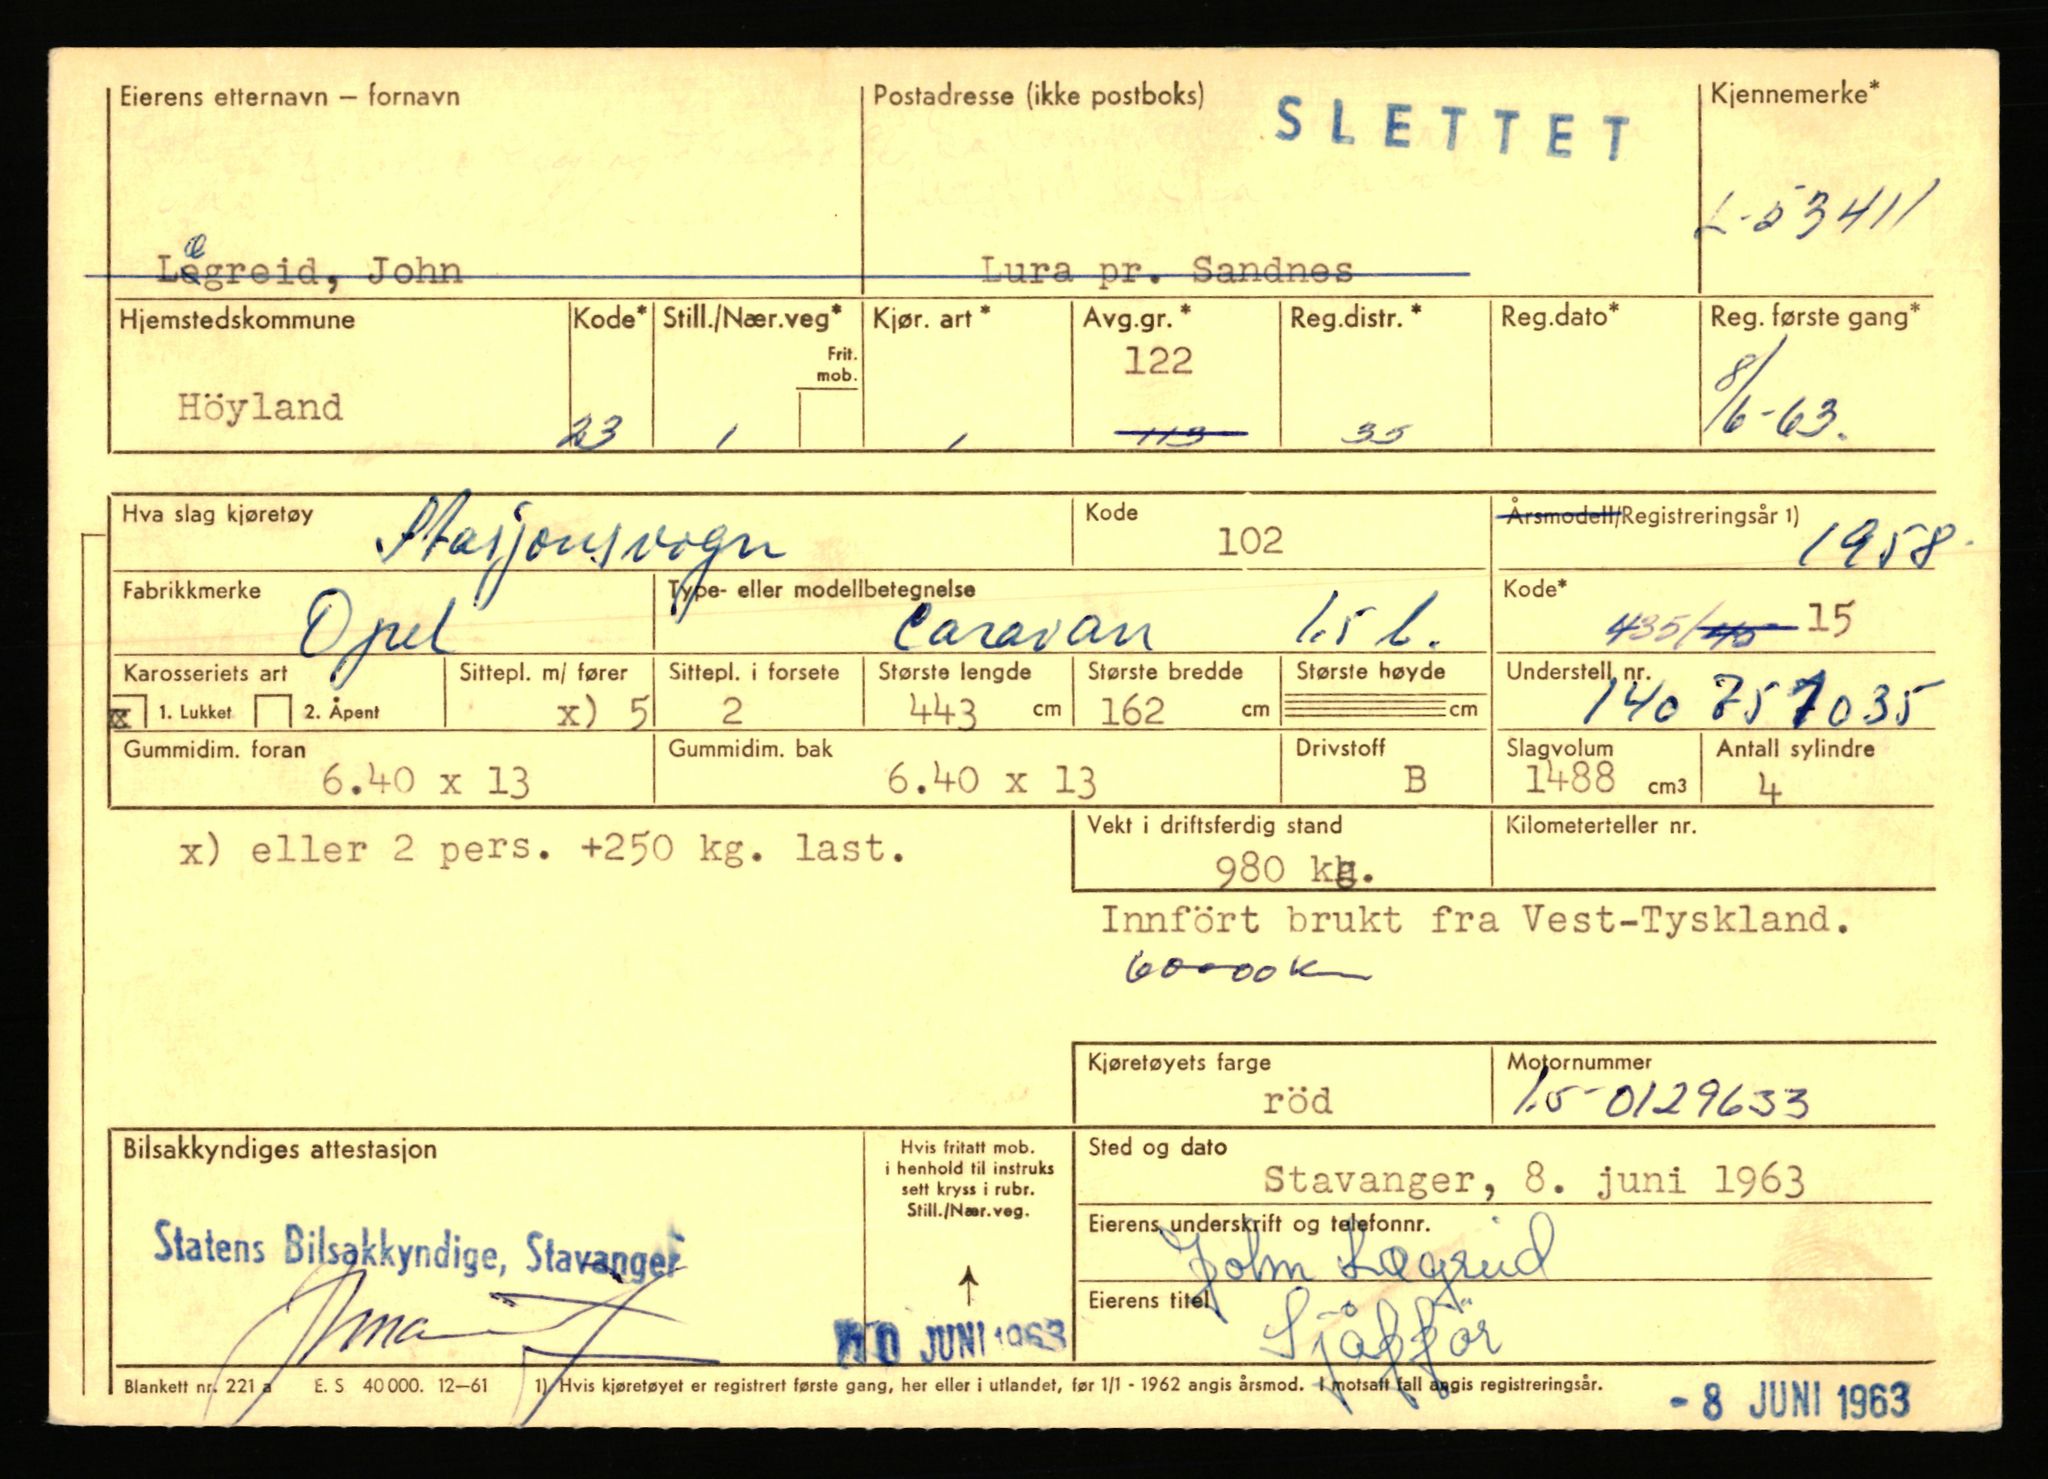 Eierens etternavn – fornavn
Postadresse (ikke postboks)
SLETTET
Kjennemerke*
L-53411
Lægreid, John
Lura pr. Sandnes
Hjemstedskommune Kode* Still./Nær.veg* Kjør. art* Avg.gr.* Reg.distr.* Reg.dato* Reg. første gang*
Frit.
mob.
122
Höyland 23 1 1 113 35 8/6-63.
Hva slag kjøretøy Stasjonsvogn
Kode 102
Årsmodell/Registreringsår 1)
1958.
Fabrikkmerke Opel
Type- eller modellbetegnelse
Caravan 1.5 l.
Kode*
435/45 15
Karosseriets art Sittepl. m/ fører Sittepl. i forsete Største lengde Største bredde Største høyde Understell nr.
x 1. Lukket 2. Åpent x) 5 2 443 cm 162 cm cm 140 757035
Gummidim. foran Gummidim. bak Drivstoff Slagvolum Antall sylindre
6.40 x 13 6.40 x 13 B 1488 cm3 4
x) eller 2 pers. +250 kg. last.
Vekt i driftsferdig stand Kilometerteller nr.
980 kg.
Innfört brukt fra Vest-Tyskland.
60000 km
Kjøretøyets farge Motornummer
röd 1.5-0129633
Bilsakkyndiges attestasjon
Hvis fritatt mob.
i henhold til instruks
sett kryss i rubr.
Still./Nær.veg.
Sted og dato
Stavanger, 8. juni 1963
Statens Bilsakkyndige, Stavanger
Eierens underskrift og telefonnr.
John Lægreid
Eierens titel
Sjåfför
JUNI 1963
Blankett nr. 221 a E. S 40 000. 12–61 1) Hvis kjøretøyet er registrert første gang, her eller i utlandet, før 1/1 - 1962 angis årsmod. I motsatt fall angis registreringsår.
- 8 JUNI 1963